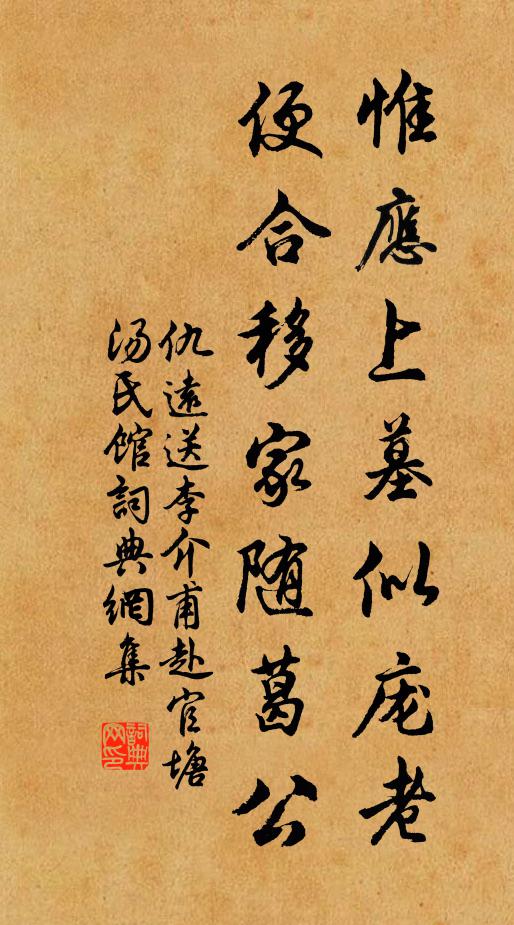 惟應上墓似庞老
便合移家随葛公
仇遠送李介甫赴官塘
湯氏館詞典網集
詞典
网印